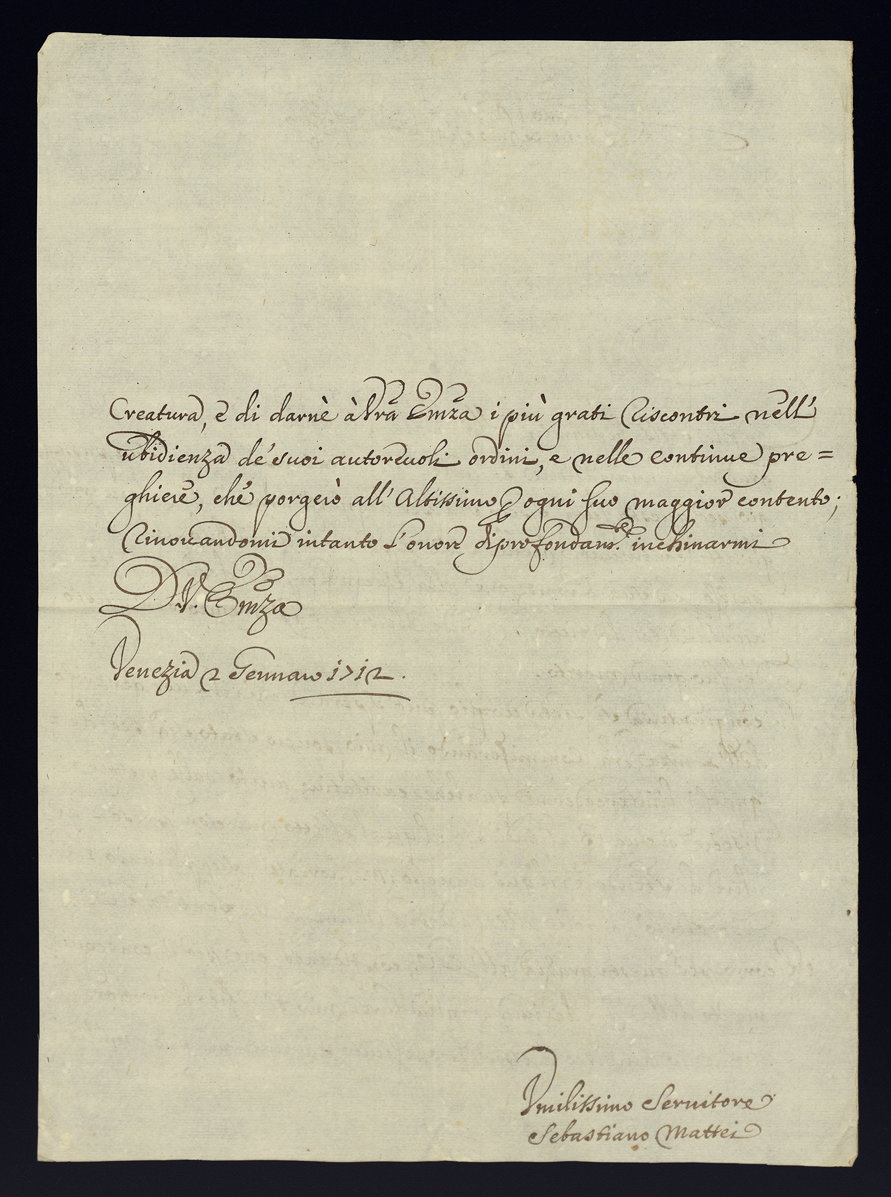 Creatura, e di darne à Vra Emza i più grati riscontri nell'
ubidienza de' suoi autoreuoli ordini, e nelle continue pre=
ghiere, che porgerò all'Altissimo p ogni suo maggior contento;
rinouandomi intanto l'onore di profondam.te inchinarmi
D. V. Emza
Venezia 2 Gennaro 1712.
Vmilissimo Seruitore
Sebastiano Mattei